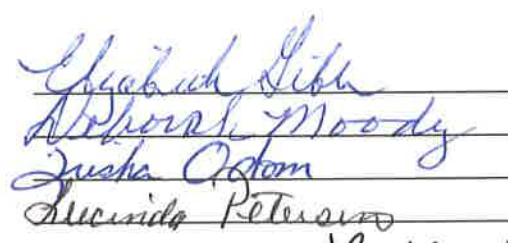 Elizabeth Gibb
Deborah Moody
Trisha Odom
Lucinda Peterson